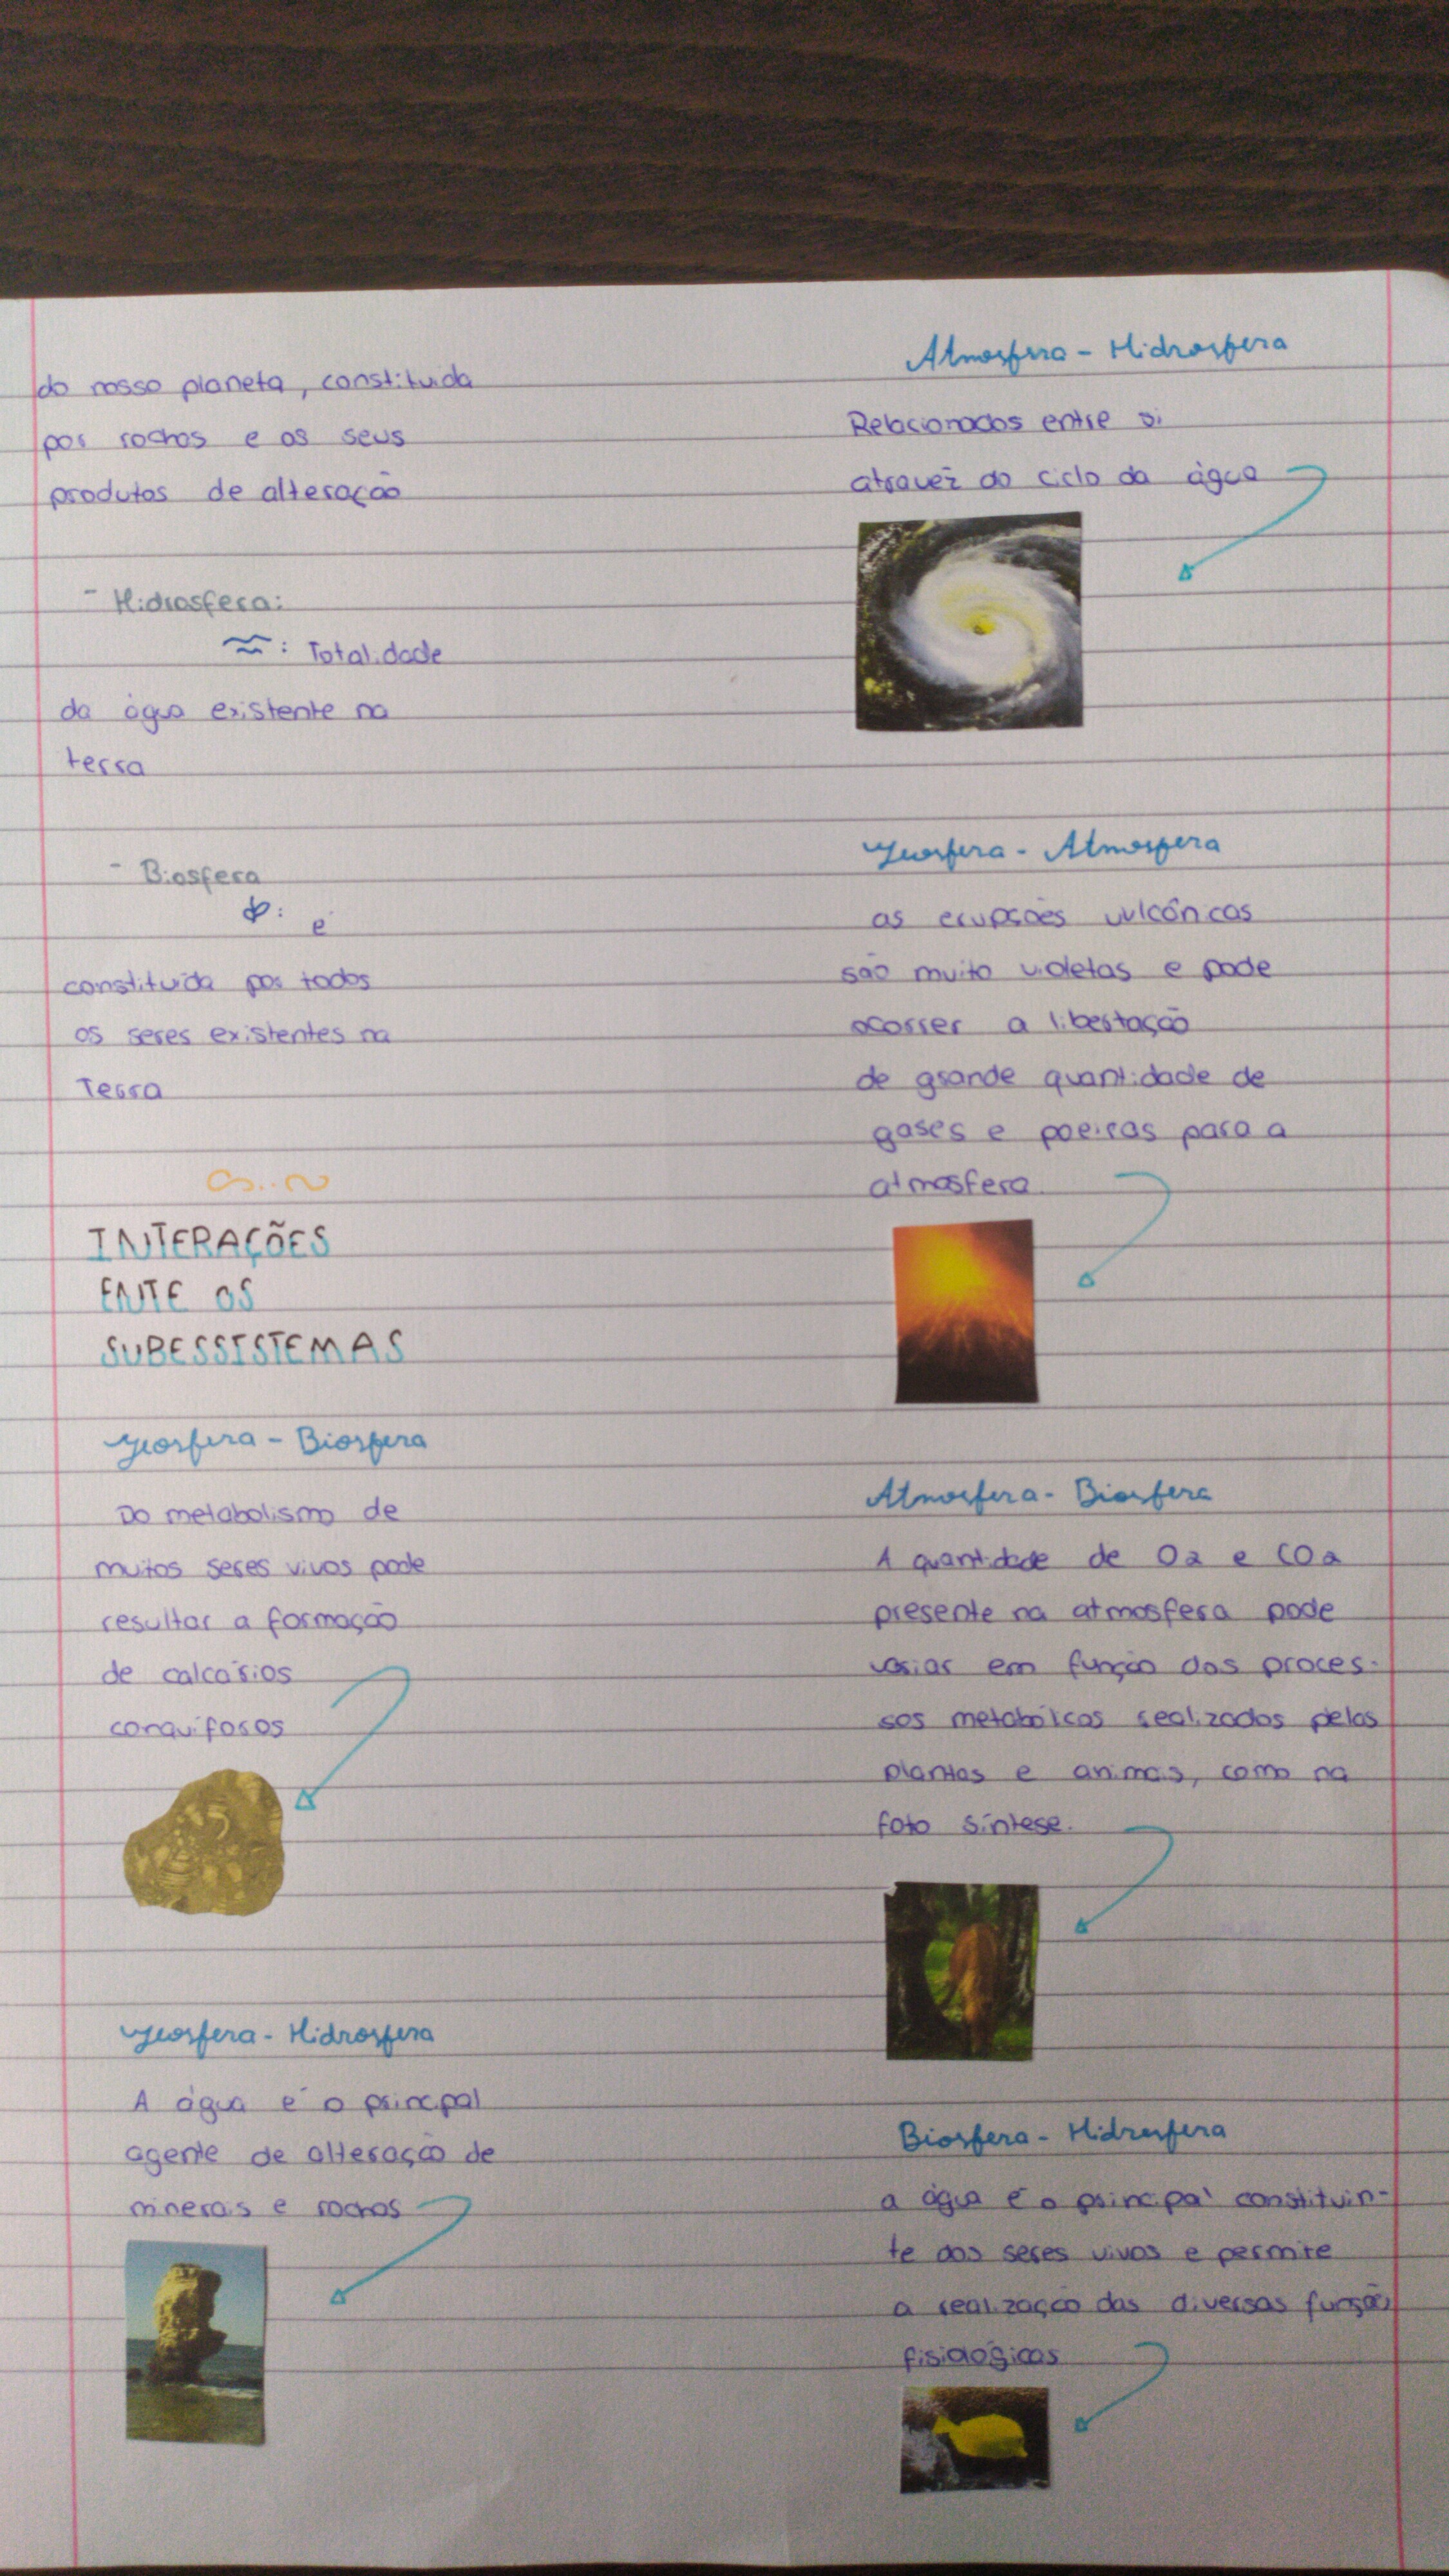 do nosso planeta, constituida
por rochas e os seus
produtos de alteração
- Hidrosfera:
: Totalidade
da água existente na
terra
- Biosfera
: é
constituída por todos
os seres existentes na
Terra
INTERAÇÕES
ENTE OS
SUBESSISTEMAS
Geosfera - Biosfera
Do metabolismo de
muitos seres vivos pode
resultar a formação
de calcários
conquíferos
Geosfera - Hidrosfera
A água é o principal
agente de alteração de
minerais e rochas
Atmosfera - Hidrosfera
Relacionados entre si
através do ciclo da água
Geosfera - Atmosfera
as erupções vulcânicas
são muito violetas e pode
ocorrer a libertação
de grande quantidade de
gases e poeiras para a
atmosfera
Atmosfera - Biosfera
A quantidade de O2 e CO2
presente na atmosfera pode
variar em função dos proces-
sos metabólicos realizados pelas
plantas e animais, como na
foto síntese.
Biosfera - Hidrosfera
a água é o principal constituin-
te dos seres vivos e permite
a realização das diversas
fisiológicas